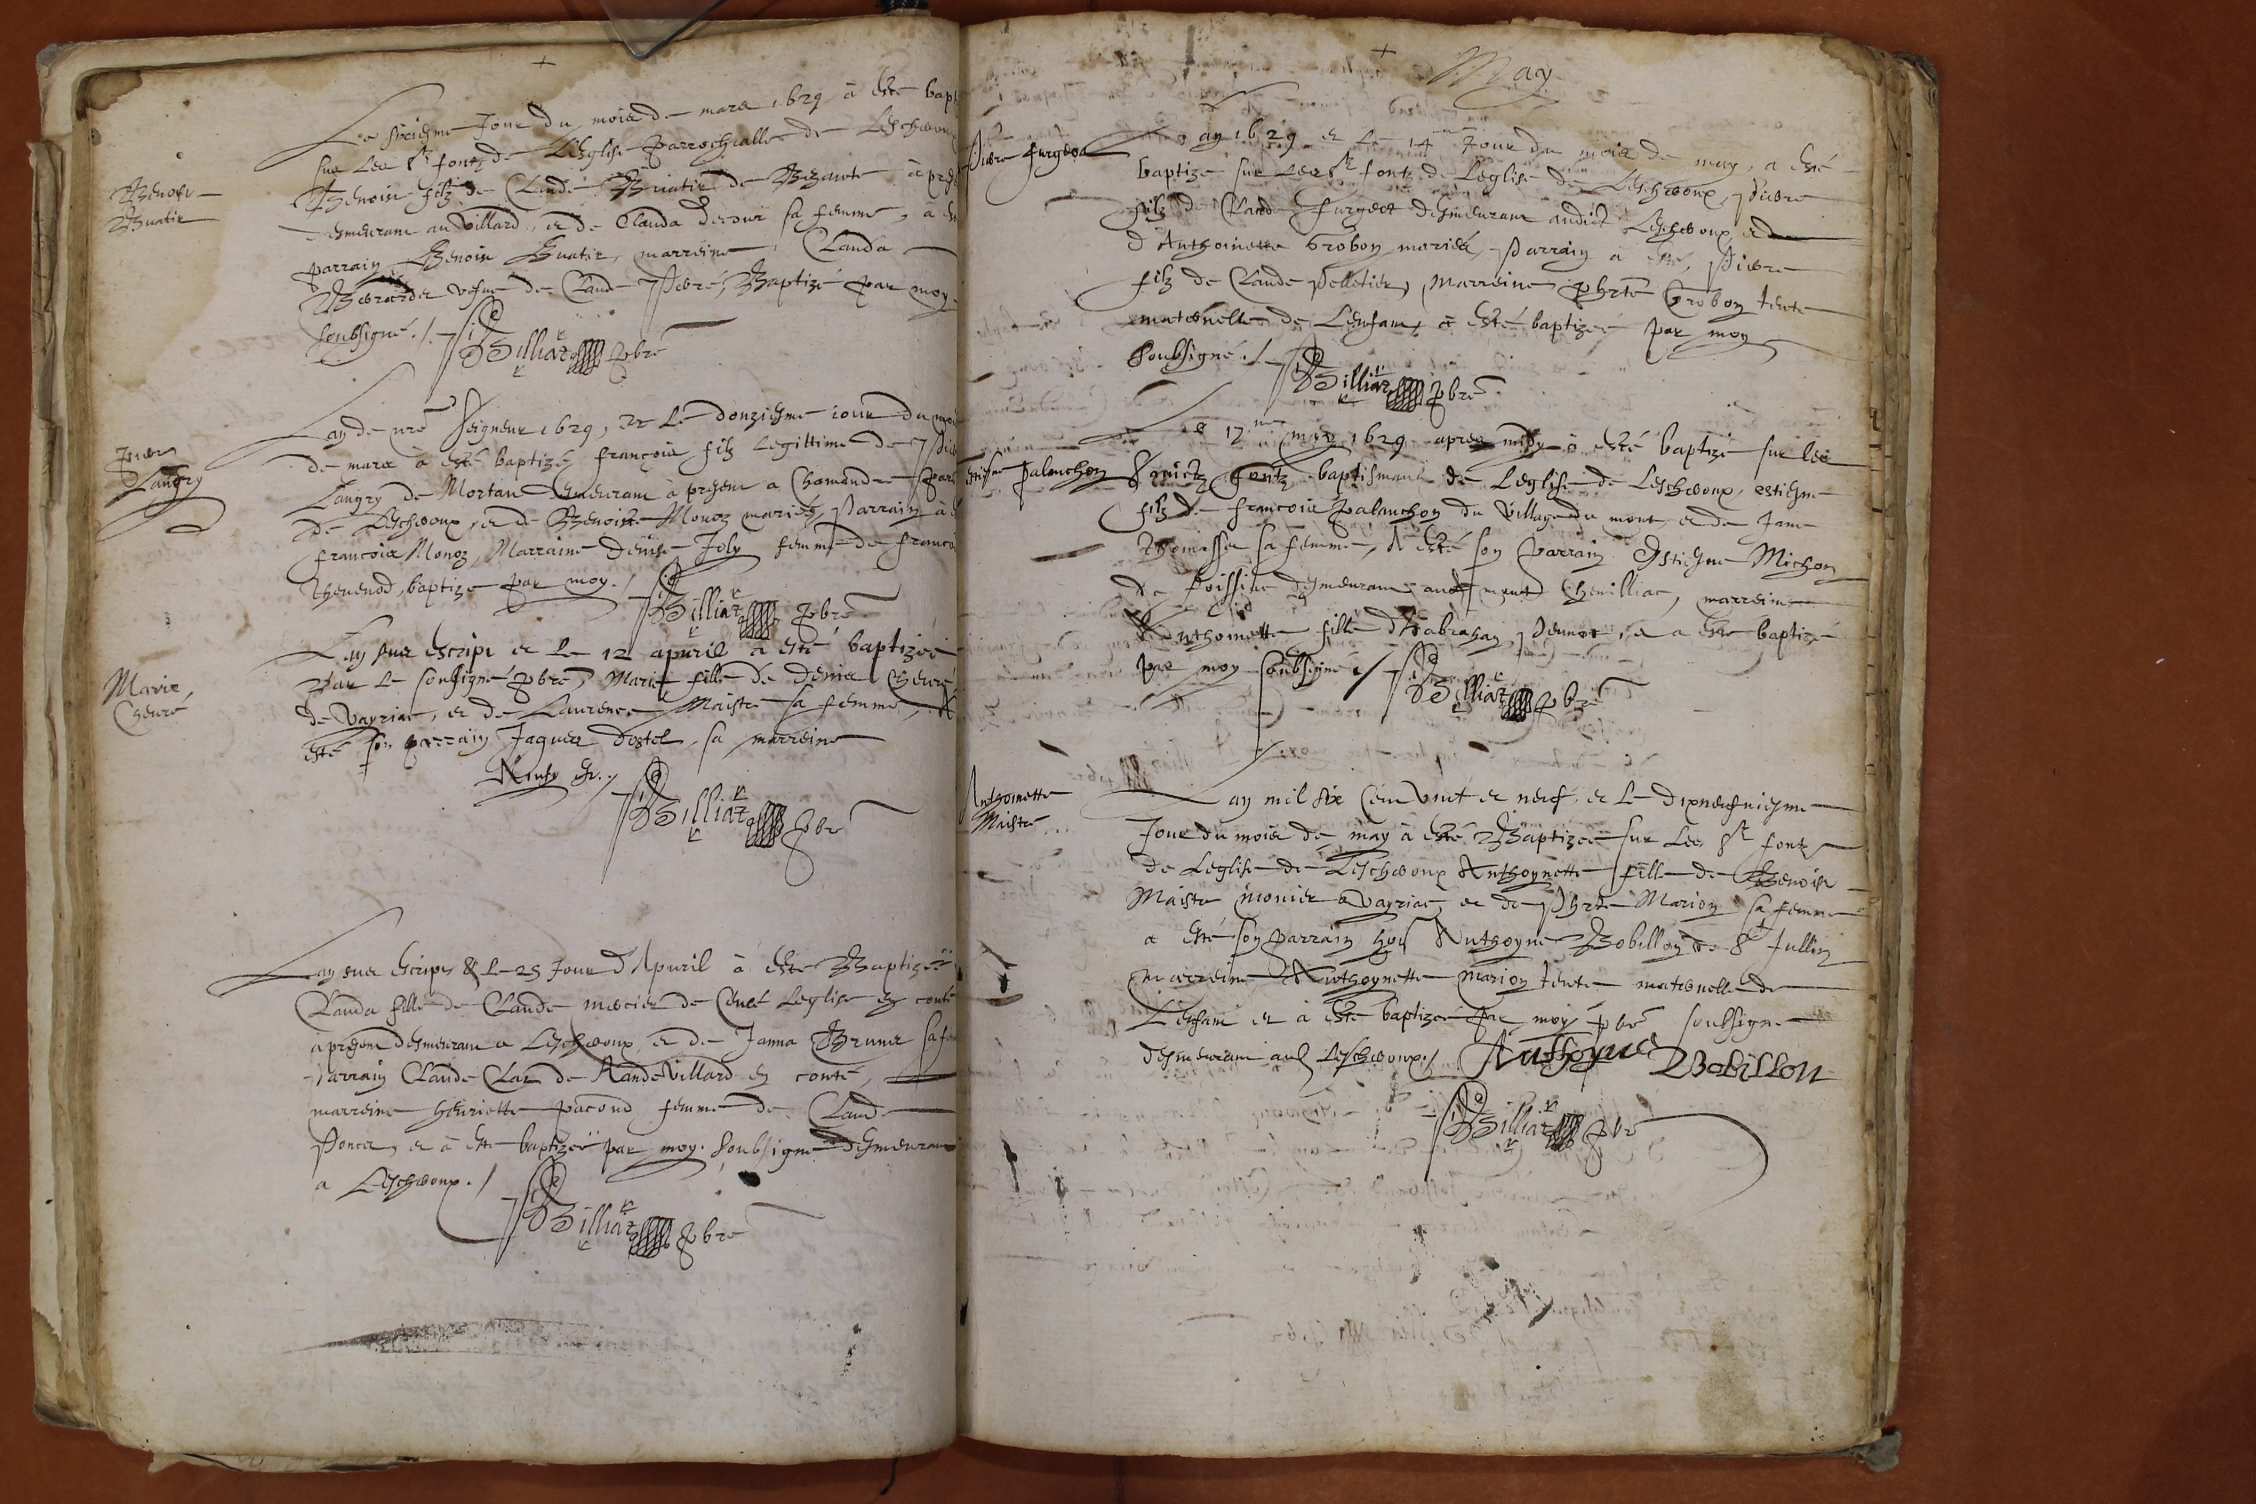 Le sixiesme Jour du mois de mars 1629 à esté bapt
sur les Stz fontz de L'Esglise Parrochialle de Lescheoux
Benoist
Buatie
Benoist filz de Claude Buatie de à prese
desmeurant au Villard, et de Clauda sa femme, à
parrain Benoist Buatie, marreine Clauda
vefue de Claude Baptizé par moy
soubsigné ./. Billiaz pbre
Lan de nre Seigneur 1629, Et Le douziesme iour du moi
Langry
de mars à esté baptizé françois filz Legittime de
Langry de Mortane desmeurant à present a Chamandre
de Lescheoux, et de Benoiste Monoz mariés, Parrain à
francois Monoz, Marraine Denise Joly femme de franco
Thevenod, baptizé par moy ./
Billiaz pbre
Lan sus escript et Le 12 apuril à esté baptizée
Marie
Cheuré
Par Le sousigné pbre, Marie fille de Denis Cheuré
de Vayriat, et de Laurence Maistre sa femme, A
esté son parrain Jaques d'ostel, sa marreine
Billiaz pbre
Lan sus escript & Le 25 Jour d'Apuril à esté Baptizée
Clauda fille de Claude mercier de Leglise en conté
à present desmeurant a Lescheoux, et de Janna Brunet sa fe
Parrain Claude Claz de RandeVillard en conté,
marreine henriette pacoud femme de Claude
Poncet, et à esté baptizée par moy soubsigné desmeurant
a Leschoux ./
Billiaz pbre
May
Pierre furgeot
L'an 1629 et le 14me Jour du mois de may, a esté
baptizé sur Les Stz fontz de Leglise de Lescheoux, Pierre
filz de Claude furgeot desmeurant audict Leschoux et de
d'Anthoinette Grobon mariés, Parrain à esté, Pierre
filz de Claude Pelletier, Marreine Grobon tente
maternelle de Lenfant, à esté baptizé par moy
soubsigné ./.
Billiaz pbre
Le 17me may 1629 apres midy à esté baptizé sur les
Estiesne palanchon
sainctz fontz baptismaux de Leglise de Leschoux, estiesne
filz de francois palanchon du village du mont, et de Jane
Thomasset sa femme, A esté son parrain Estiesne Michon
de Poissiat desmeurant mont Chevilliat, marreine
Anthoinette fille d'Habraham, et a esté baptizé
par moy soubsigné ./
Billiaz pbre
Anthoinette
Maistre
L'an mil six Cent vint et neuf, et Le dixneufuiesme
Jour du mois de may à esté Baptizée sur Les St fontz
de Leglise de Leschoux Anthoynette fille de Benoist
Maistre monier a Vayriat, et de Marion sa femme
a esté son parrain hon Anthoyne Bobillon de St Jullin
marreine Anthoynette Marion tente maternelle de
Lenfant et à esté baptizée par moy pbre soubsigné
desmeurant aud Leschoux ./ Anthoyne Bobillon
Billiaz pbre